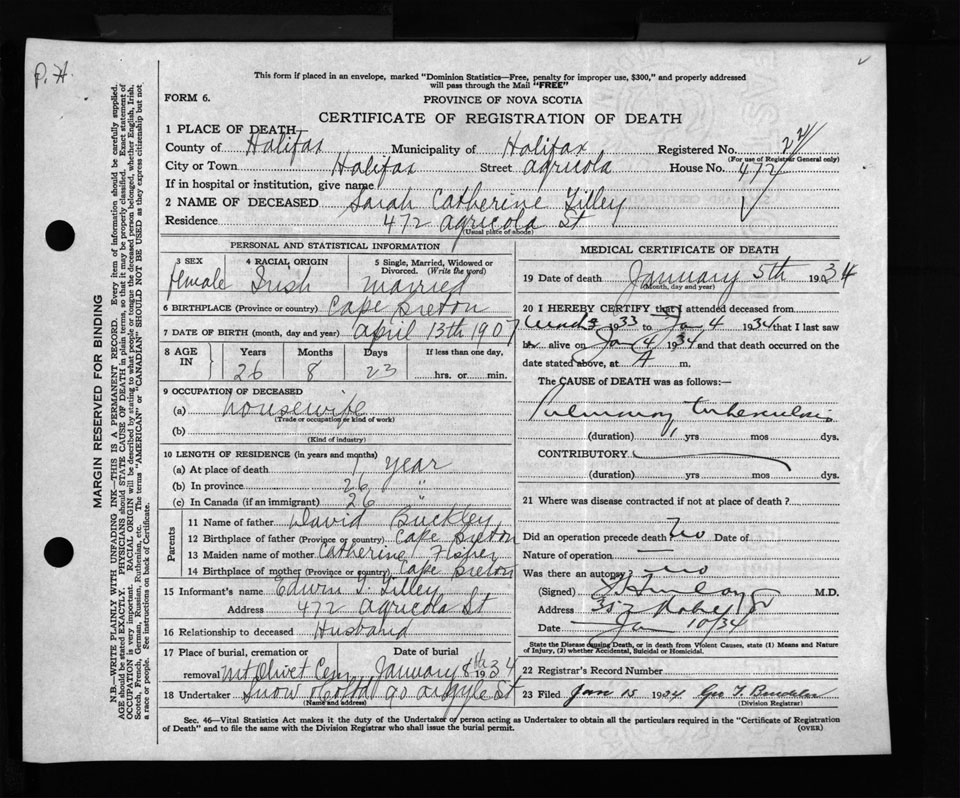 P. H.
This form if placed in an envelope, marked "Dominion Statistics—Free, penalty for improper use, $300," and properly addressed
will pass through the Mail "FREE"
FORM 6.
PROVINCE OF NOVA SCOTIA
CERTIFICATE OF REGISTRATION OF DEATH
1 PLACE OF DEATH
County of Halifax Municipality of Halifax Registered No.
(For use of Registrar General only)
City or Town Halifax Street Agricola House No. 472
If in hospital or institution, give name
2 NAME OF DECEASED Sarah Catherine Tilley
Residence 472 Agricola St
(Usual place of abode)
PERSONAL AND STATISTICAL INFORMATION
3 SEX 4 RACIAL ORIGIN 5 Single, Married, Widowed or
Divorced. (Write the word)
Female Irish Married
6 BIRTHPLACE (Province or country) Cape Breton
7 DATE OF BIRTH (month, day and year) April 13th 1907
8 AGE IN Years Months Days If less than one day,
26 8 23 hrs. or min.
9 OCCUPATION OF DECEASED
(a) Housewife
(Trade or occupation or kind of work)
(b)
(Kind of industry)
10 LENGTH OF RESIDENCE (in years and months)
(a) At place of death 1 year
(b) In province 26 "
(c) In Canada (if an immigrant) 26 "
Parents
11 Name of father David Buckley
12 Birthplace of father (Province or country) Cape Breton
13 Maiden name of mother Catherine
14 Birthplace of mother (Province or country) Cape Breton
15 Informant's name Edwin T. Tilley
Address 472 Agricola St
16 Relationship to deceased Husband
17 Place of burial, cremation or Date of burial
removal Mt Olivet Cem January 8th 1934
18 Undertaker Snow 90 Argyle St
(Name and address)
MEDICAL CERTIFICATE OF DEATH
19 Date of death January 5th 1934
(Month, day and year)
20 I HEREBY CERTIFY that I attended deceased from
1933 to Jan 4 1934 that I last saw
alive on Jan 4 1934 and that death occurred on the
date stated above, at A m.
The CAUSE OF DEATH was as follows:—
Pulmonary tuberculosis
(duration) 1 yrs mos dys.
CONTRIBUTORY
(duration) yrs mos dys.
21 Where was disease contracted if not at place of death?
Did an operation precede death No Date of
Nature of operation —
Was there an autopsy no
(Signed) M.D.
Address
Date Jan 10/34
State the Disease causing Death, or in death from Violent Causes, state (1) Means and Nature
of Injury, (2) whether Accidental, Suicidal or Homicidal.
22 Registrar's Record Number
23 Filed Jan 15 1934 Geo T.
(Division Registrar)
Sec. 46—Vital Statistics Act makes it the duty of the Undertaker or person acting as Undertaker to obtain all the particulars required in the "Certificate of Registration
of Death" and to file the same with the Division Registrar who shall issue the burial permit.
(OVER)
MARGIN RESERVED FOR BINDING
N.B.—WRITE PLAINLY WITH UNFADING INK—THIS IS A PERMANENT RECORD. Every item of information should be carefully supplied.
AGE should be stated EXACTLY. PHYSICIANS should STATE CAUSE OF DEATH in plain terms, so that it may be properly classified. Exact statement of
OCCUPATION is very important. RACIAL ORIGIN will be described by stating to what people or tongue the deceased person belonged, whether English, Irish,
Scotch, French, German, Russian, Ruthenian, etc. The terms "AMERICAN" or "CANADIAN" SHOULD NOT BE USED as they express citizenship but not
a race or people. See instructions on back of Certificate.